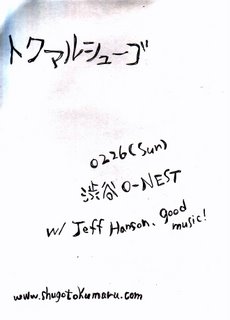 トクマルシューゴ
0226(Sun)
渋谷 O-NEST
w/ Jeff Hanson, good
music!
www.shugotokumaru.com